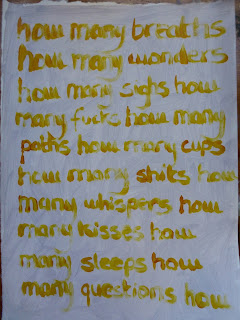 how many breaths
how many wonders
how many sighs how
many fucks how many
paths how many cups
how many shits how
many whispers how
many kisses how
many sleeps how
many questions how